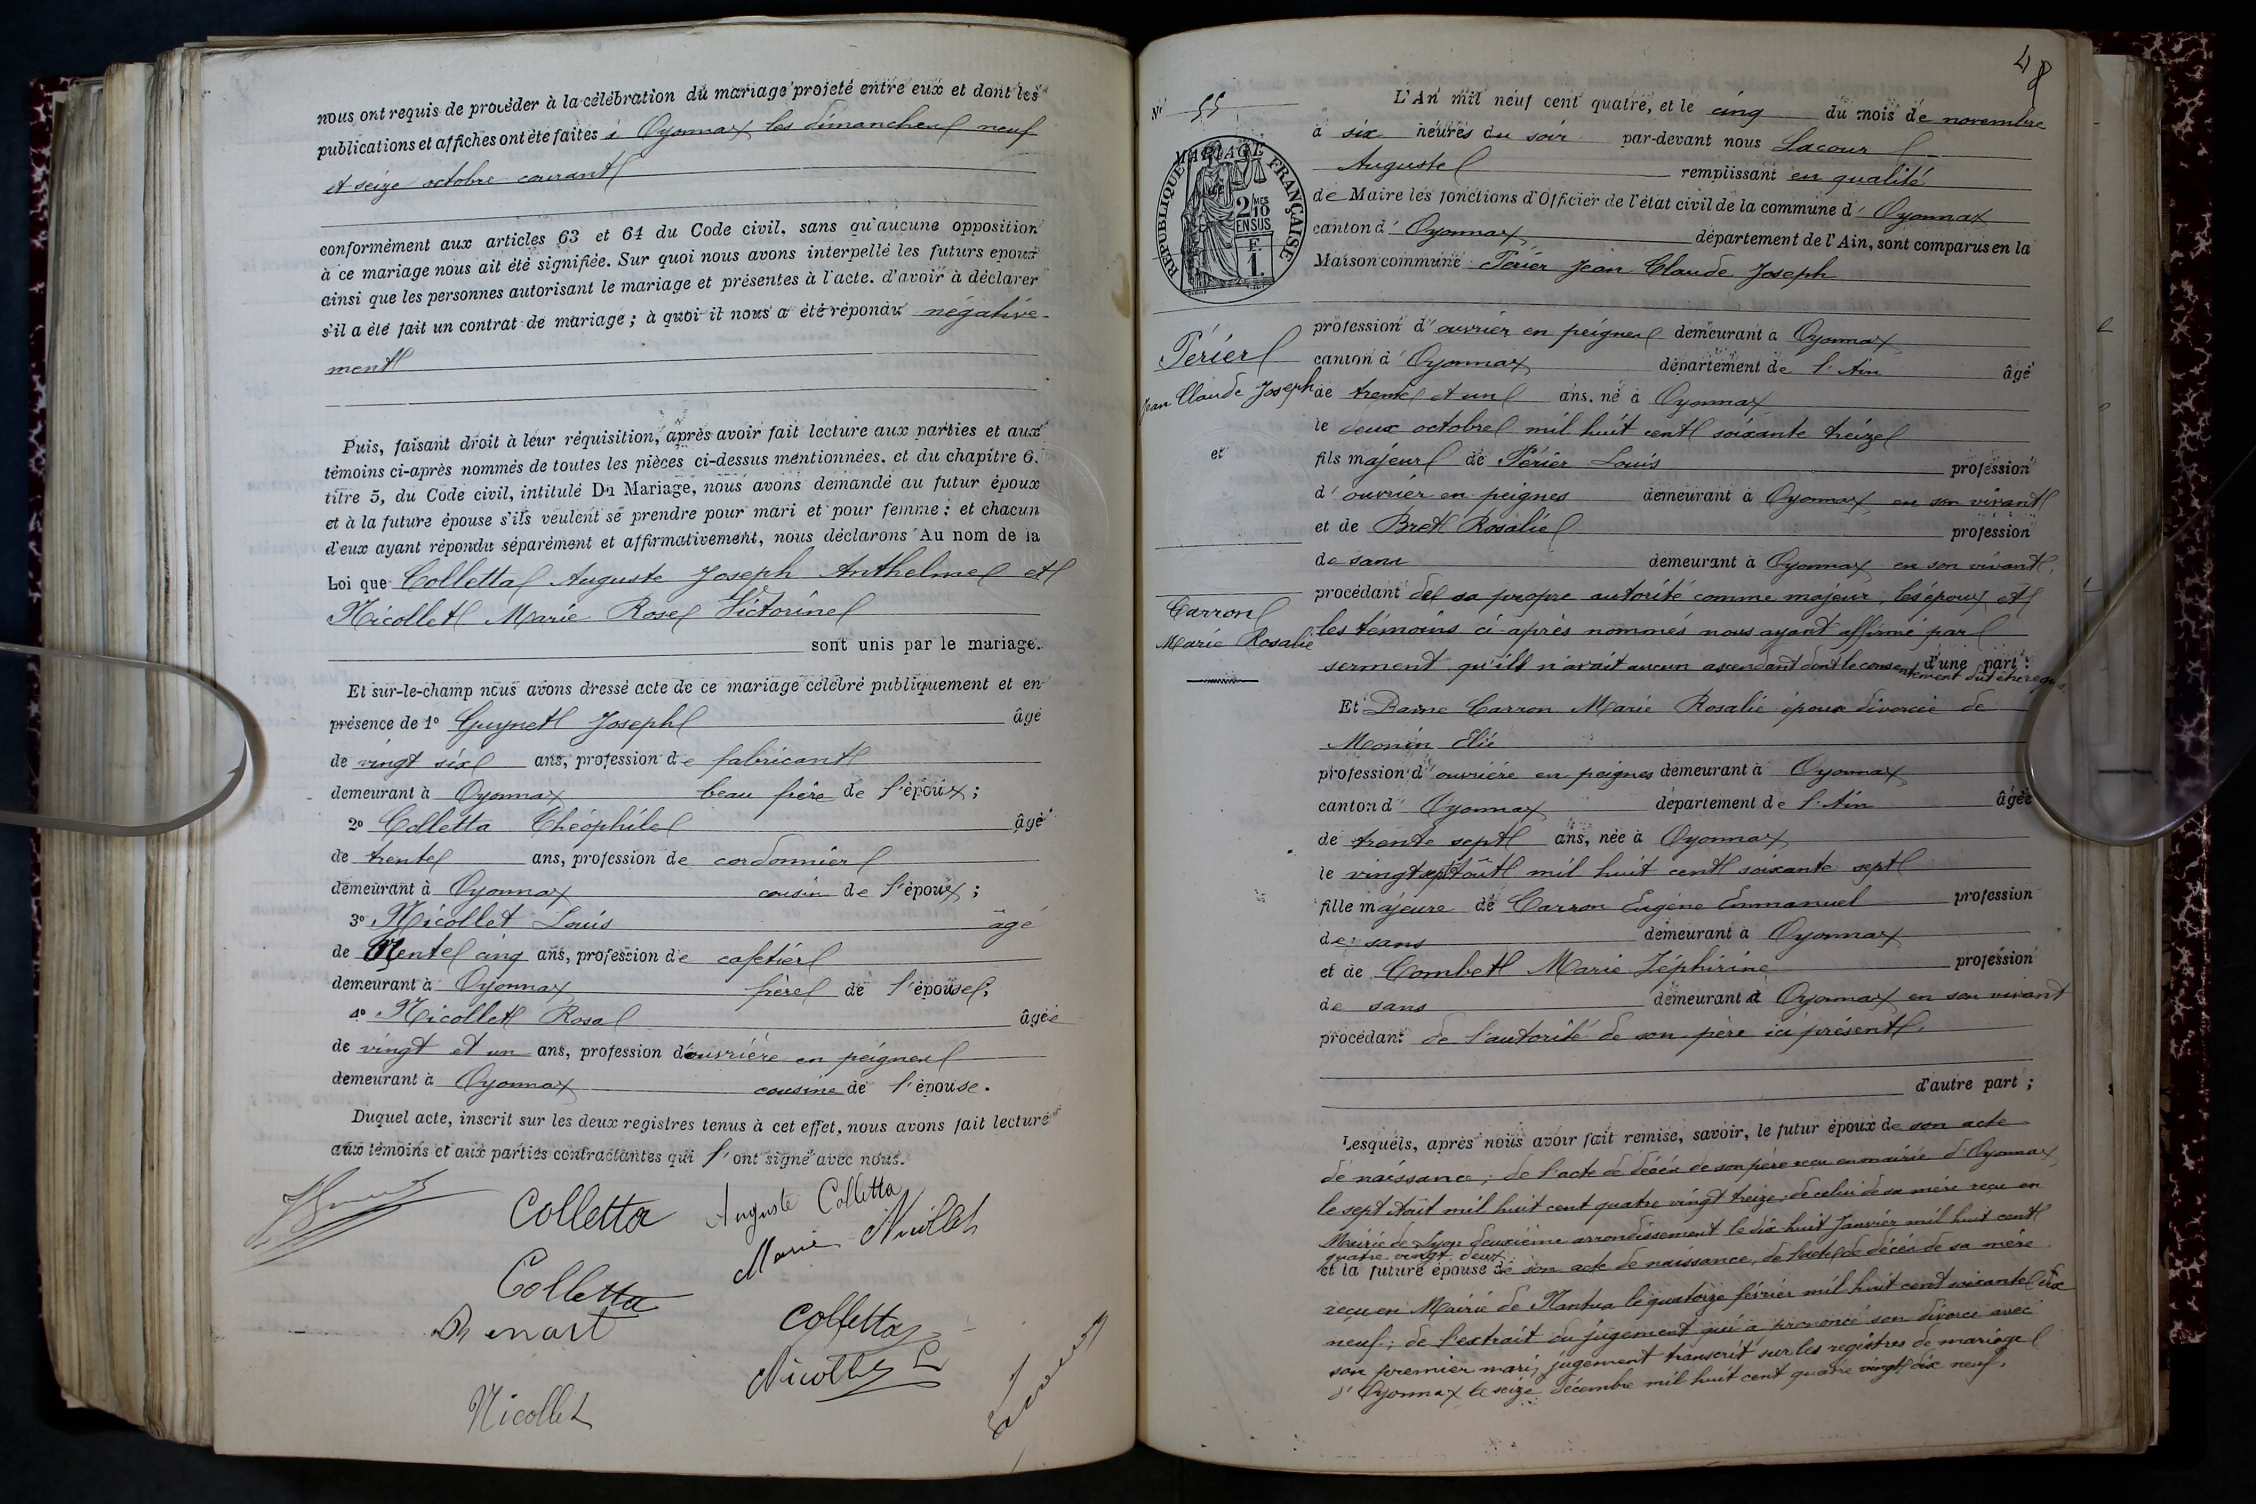 nous ont requis de procéder à la célébration du mariage projeté entre eux et dont les
publications et affiches ont été faites à Oyonnax les dimanches neuf
et seize octobre courant
conformément aux articles 63 et 64 du Code civil, sans qu'aucune opposition
à ce mariage nous ait été signifiée. Sur quoi nous avons interpellé les futurs époux
ainsi que les personnes autorisant le mariage et présentes à l'acte. d'avoir à déclarer
s'il a été fait un contrat de mariage ; à quoi il nous a été répondu négative-
ment
Puis, faisant droit à leur réquisition, après avoir fait lecture aux parties et aux
témoins ci-après nommés de toutes les pièces ci-dessus mentionnées, et du chapitre 6.
titre 5, du Code civil, intitulé Du Mariage, nous avons demandé au futur époux
et à la future épouse s'ils veulent se prendre pour mari et pour femme ; et chacun
d'eux ayant répondu séparément et affirmativement, nous déclarons Au nom de la
Loi que Colletta Auguste Joseph Anthelme et
Nicollet Marie Rose Victorine
sont unis par le mariage.
Et sur-le-champ nous avons dressé acte de ce mariage célébré publiquement et en
présence de 1º Guynet Joseph âgé
de vingt six ans, profession de fabricant
demeurant à Oyonnax beau frère de l'époux ;
2º Colletta Théophile âgé
de trente ans, profession de cordonnier
demeurant à Oyonnax cousin de l'époux ;
3º Nicollet Louis âgé
de trente cinq ans, profession de cafetier
demeurant à Oyonnax frère de l'épouse ;
4º Nicollet Rosa âgée
de vingt et un ans, profession d'ouvrière en peignes
demeurant à Oyonnax cousine de l'épouse.
Duquel acte, inscrit sur les deux registres tenus à cet effet, nous avons fait lecture
aux témoins et aux parties contractantes qui l'ont signé avec nous.
Colletta Auguste Colletta
Marie Nicollet
Colletta
Colletta
Nicollet L
Nicollet
48
Nº 55
MARIAGE
RÉPUBLIQUE FRANÇAISE
2 MES 10
EN SUS
F.
1.
Périer
Jean Claude Joseph
et
Carron
Marie Rosalie
L'An mil neuf cent quatre, et le cinq du mois de novembre
à six heures du soir par-devant nous Lacour
Auguste remplissant en qualité
de Maire les fonctions d'Officier de l'état civil de la commune d' Oyonnax
canton d' Oyonnax département de l'Ain, sont comparus en la
Maison commune Périer Jean Claude Joseph
profession d' ouvrier en peignes demeurant à Oyonnax
canton d' Oyonnax département de l'Ain âgé
de trente et un ans, né à Oyonnax
le deux octobre mil huit cent soixante treize
fils majeur de Périer Louis profession
d' ouvrier en peignes demeurant à Oyonnax en son vivant
et de Bret Rosalie profession
de sans demeurant à Oyonnax en son vivant,
procédant de sa propre autorité comme majeur, les époux et
les témoins ci après nommés nous ayant affirmé par
serment qu'il n'avait aucun ascendant dont le consentement dut être requis d'une part :
Et Dame Carron Marie Rosalie épouse divorcée de
Monin Elie
profession d' ouvrière en peignes demeurant à Oyonnax
canton d' Oyonnax département de l'Ain âgée
de trente sept ans, née à Oyonnax
le vingt sept Août mil huit cent soixante sept
fille majeure de Carron Eugène Emmanuel profession
de sans demeurant à Oyonnax
et de Combet Marie Zéphirine profession
de sans demeurant à Oyonnax en son vivant
procédant de l'autorité de son père ici présent.
d'autre part ;
Lesquels, après nous avoir fait remise, savoir, le futur époux de son acte
de naissance ; de l'acte de décès de son père reçu en mairie d'Oyonnax
le sept Août mil huit cent quatre vingt treize ; de celui de sa mère reçu en
Mairie de Lyon deuxième arrondissement le dix-huit Janvier mil huit cent
quatre vingt deux
et la future épouse de son acte de naissance, de l'acte de décès de sa mère
reçu en Mairie de Nantua le quatorze février mil huit cent soixante dix
neuf ; de l'extrait du jugement qui a prononcé son divorce avec
son premier mari, jugement transcrit sur les registres de mariage
d' Oyonnax le seize décembre mil huit cent quatre vingt dix neuf,